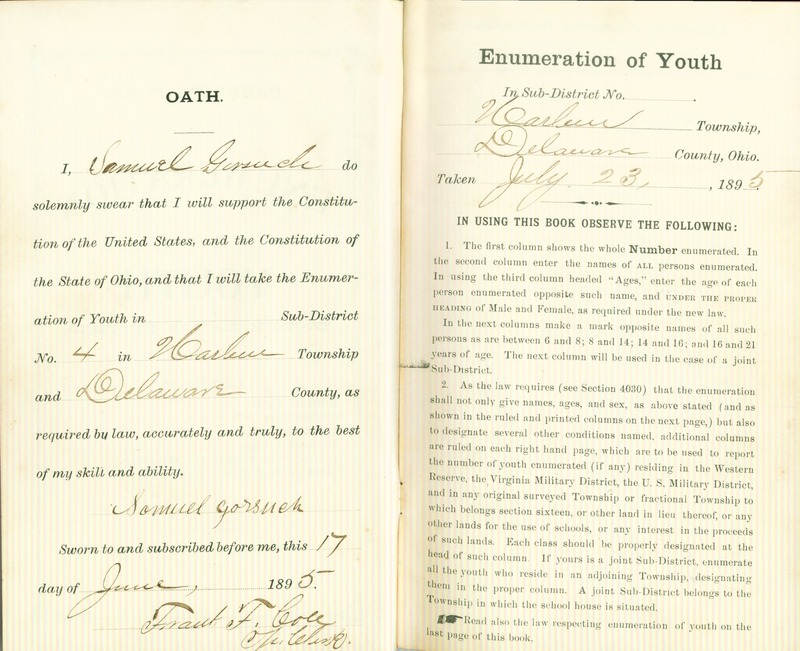 OATH.
I, Samuel Gorsuch do
solemnly swear that I will support the Constitu-
tion of the United States, and the Constitution of
the State of Ohio, and that I will take the Enumer-
ation of Youth in Sub-District
No. 4 in Harlem Township
and Delaware County, as
required by law, accurately and truly, to the best
of my skill and ability.
Samuel gorsuch
Sworn to and subscribed before me, this 17
day of June, 1895.
F. Cole
Enumeration of Youth
In Sub-District No.
Harlem Township,
Delaware County, Ohio.
Taken July 23, , 1895.
IN USING THIS BOOK OBSERVE THE FOLLOWING:
1. The first column shows the whole Number enumerated. In
the second column enter the names of ALL persons enumerated.
In using the third column headed "Ages," enter the age of each
person enumerated opposite such name, and UNDER THE PROPER
HEADING of Male and Female, as required under the new law.
In the next columns make a mark opposite names of all such
persons as are between 6 and 8; 8 and 14; 14 and 16; and 16 and 21
years of age. The next column will be used in the case of a joint
Sub-District.
2. As the law requires (see Section 4030) that the enumeration
shall not only give names, ages, and sex, as above stated (and as
shown in the ruled and printed columns on the next page,) but also
to designate several other conditions named, additional columns
are ruled on each right hand page, which are to be used to report
the number of youth enumerated (if any) residing in the Western
Reserve, the Virginia Military District, the U. S. Military District,
and in any original surveyed Township or fractional Township to
which belongs section sixteen, or other land in lieu thereof, or any
other lands for the use of schools, or any interest in the proceeds
of such lands. Each class should be properly designated at the
head of such column. If yours is a joint Sub-District, enumerate
all the youth who reside in an adjoining Township, designating
them in the proper column. A joint Sub-District belongs to the
Township in which the school house is situated.
Read also the law respecting enumeration of youth on the
last page of this book.